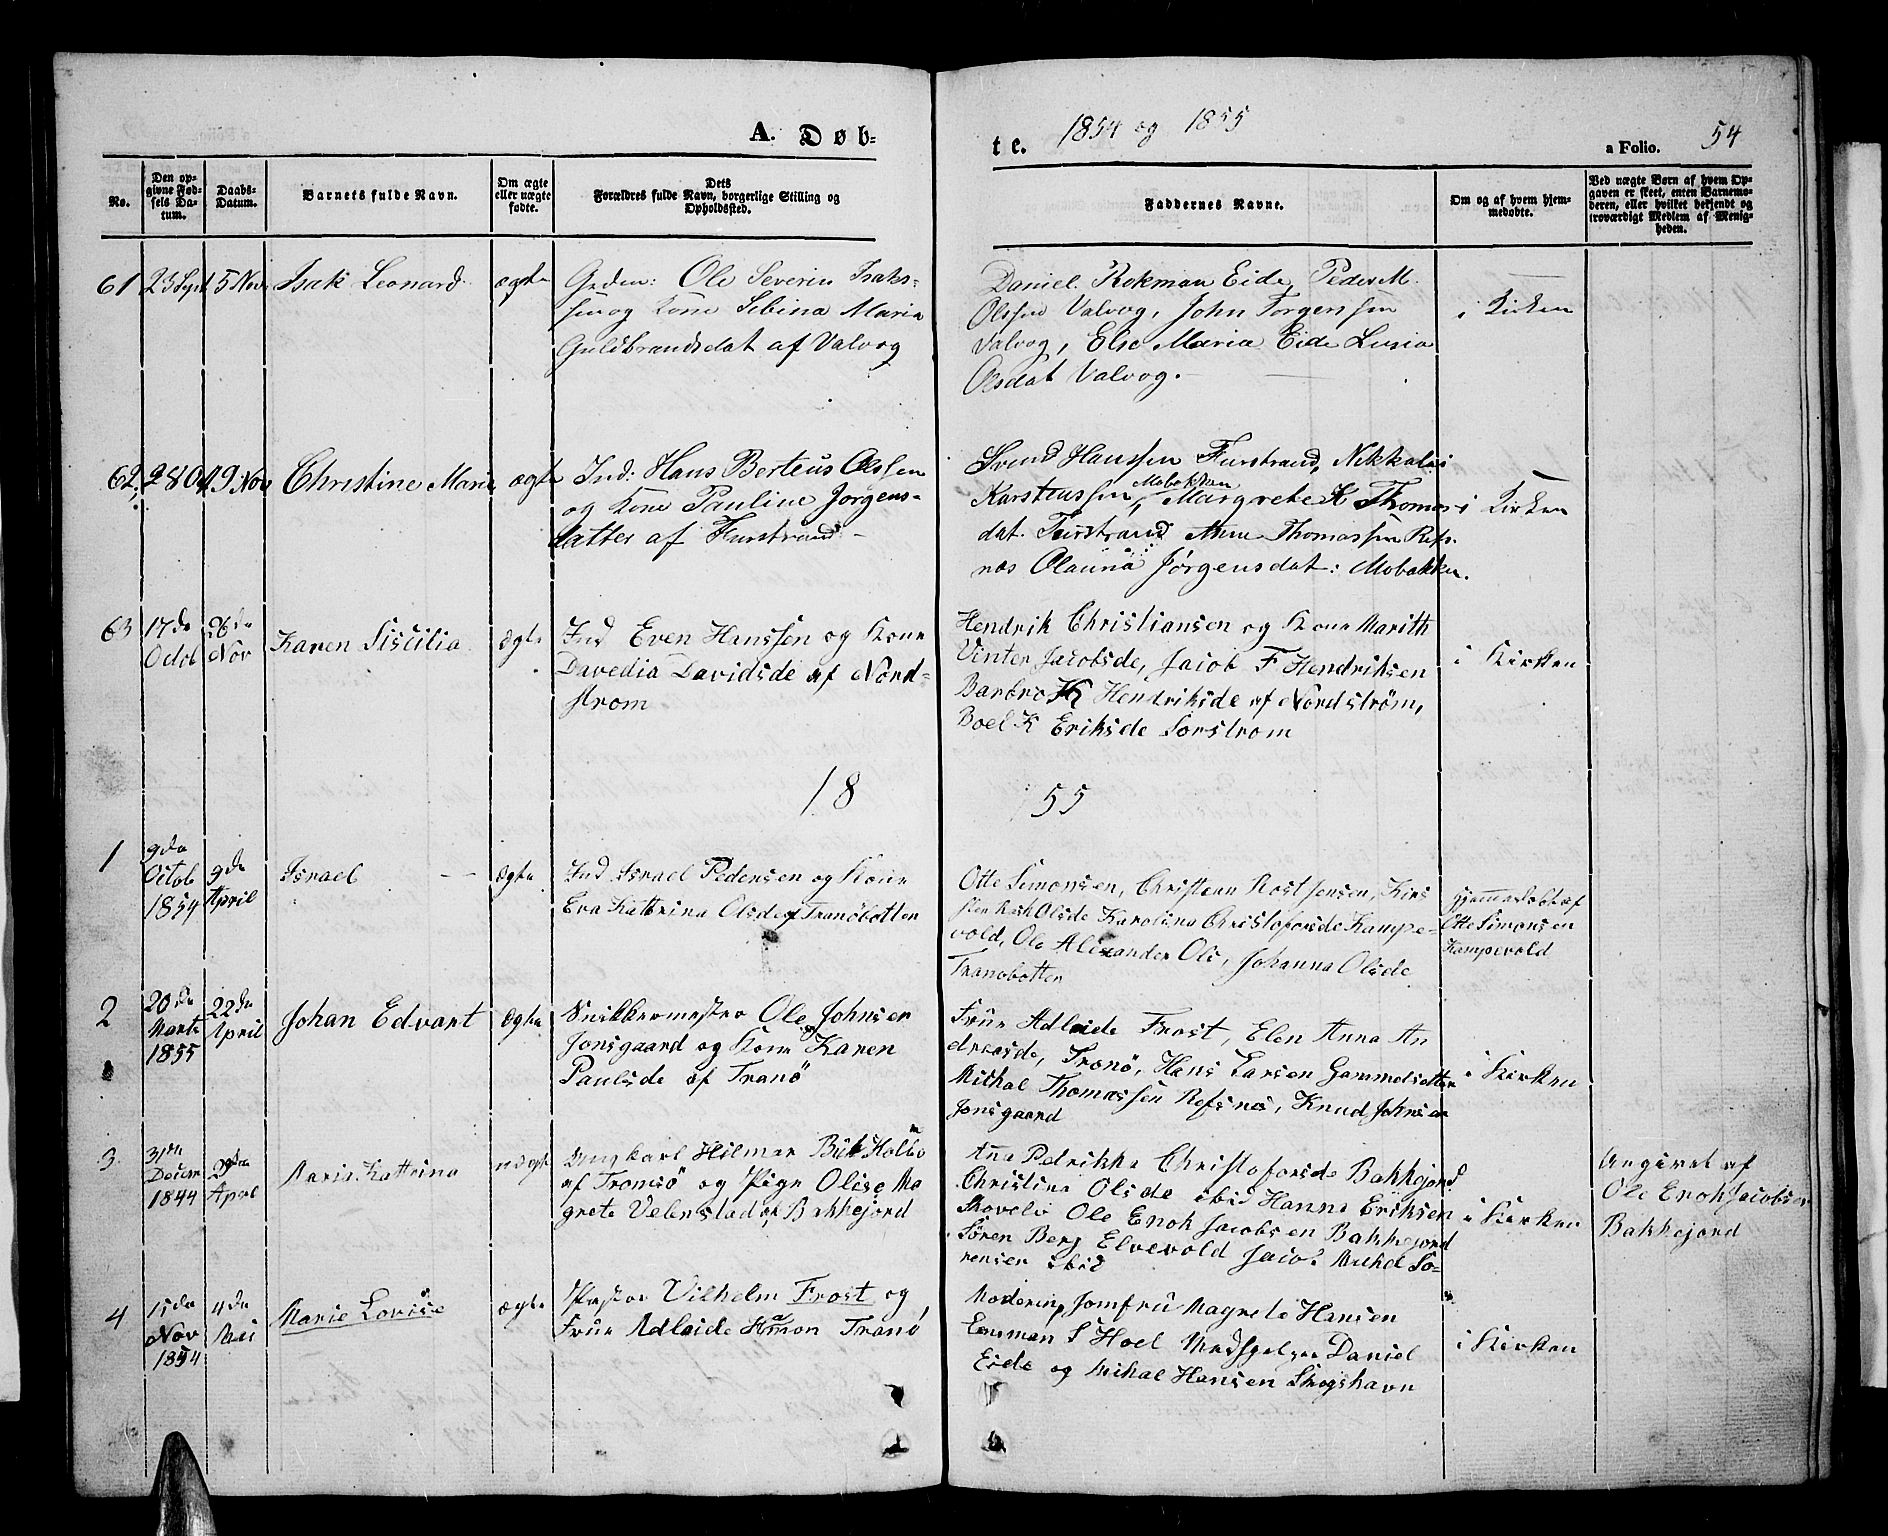 A. Døb-
te.
1854 og 1855
a Folio. 54
No.
Den op-
givne Fød-
sels Da-
tum.
Daabs-
Datum.
Barnets fulde Navn.
Om ægte
eller uægte
fødte.
Dets
Forældres fulde Navn, borgerlige Stilling og
Opholdssted.
Faddernes Navne.
Om og af hvem hjem-
medøbte.
Ved uægte Børn af hvem Op-
gaven er skeet, enten Barnemo-
deren, eller hvilket bekjendt og
troværdigt Medlem af Menig-
heden.
61 23 Sept 5 Nov Isak Leonard ægte
Ole Severin Isaks-
sen og Kone Sebina Maria
Guldbrandsdat af Valvog
Daniel Rokman Eide, Peder M.
Olssen Valvog, John Jørgenssen
Valvog, Else Maria Eide Lusia
Olsdat Valvog.
i Kirken
62 28 Oct 19 Nov Christine Marie ægte
Ind: Hans Berteus Olssen
og Kone Pauline Jørgens-
datter af Furstrand
Svend Hanssen Furstrand, Nikkolai
Karstenssen Mobakken, Margrete K Thomas
dat. Furstrand Anne Thomassen Refs-
næs Olauna Jørgensdat: Mobakken.
i Kirken
63 17de Octob 26de Nov Karen Siscilia ægte
Ind Even Hanssen og Kone
Davedia Davidsde af Nord-
strøm
Hendrik Christiansen og Kone Marith
Vinter Jacobsde, Jacob F Hendriksen
Barbro K Hendriksde af Nordstrøm,
Boel K Eriksde Sørstrøm
i Kirken
18 55
1 9de Octob 1854 9de April Israel ægte
Ind Israel Pedersen og Kone
Eva Kattrina Olsde af Tranøbotten
Otte Simonsen, Christenn Rost Jensen, Kirs
ten Olsde Karolina Christofersde Kampe-
vold, Ole Alexander Ols, Johanna Olsde
Tranøbotten
hjemmedøbt af
Otte Simonsen
Kampevold
2 20de Marts 1855 22de April Johan Edvart ægte
Snikkermester Ole Johnsen
Jonsgaard og Kone Karen
Paulsde af Tranö
Frue Adlaide Frost, Elen Anna An
dreasde, Tranö, Hans Larsen Gammelseter
Michal Thomassen Refsnes, Knud Johnsen
Jonsgaard
i Kirken
3. 31te Decemr 1844 April Maria Kattrina uægte
Ungkarl Hilmar Buk Holbo
af Tromsö og Pige Olise Ma
grete Velenstad af Bakkejord
Anna Pedrikke Christofersde Bakkejord
Christina Olsde ibid Hanna Eriksen
Skovely Ole Enok Jacobsen Bakkejord
Søren Berg Elvevold Jacob Mikal Sø-
rensen ibid
i Kirken
Angivet af
Ole Enok Jacobsen
Bakkejord
4 15de Nov 1854 4de Mai Marie Lovise ægte
Pastor Vilhelm Frost og
Frue Adlaide Tranö
Moderen, Jomfru Magrete Hansen
Lensman S Hoel Daniel
Eide og Mikal Hansen Skogshavn
i Kirken